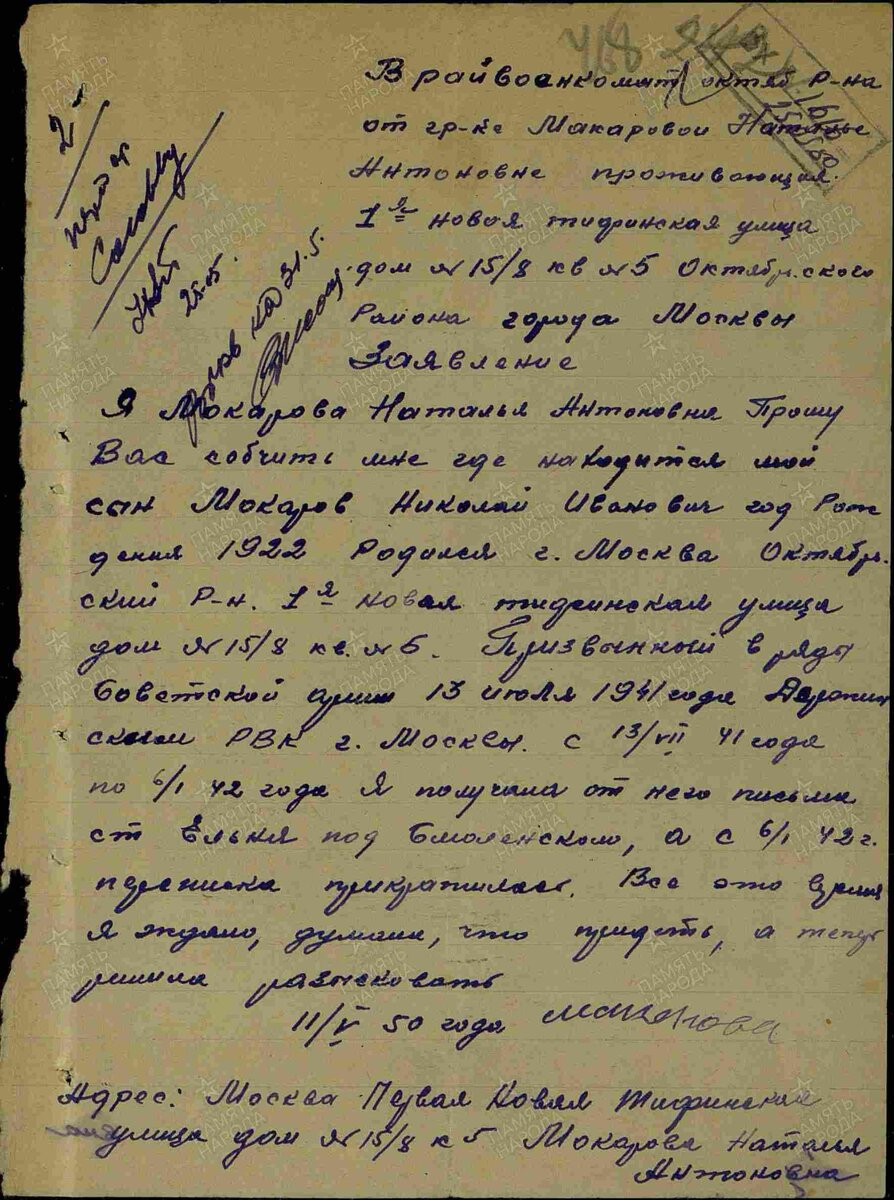 В райвоенкомат октяб Р-на
от гр-ке Макаровой Наталье
Антоновне проживающия
1я новая тифинская улица
дом № 15/8 кв № 5 Октябрьского
Района города Москвы
Заявление
Я Мокарова Наталья Антоновна Прошу
Вас собчить мне где находится мой
сын Мокаров Николай Иванович год Рож
дения 1922 Родился г. Москва Октябрь
ский Р-н. 1я новая тифинская улица
дом № 15/8 кв. № 5. Призванный в ряды
Советской армии 13 июля 1941 года
РВК г. Москвы. с 13/VII 41 года
по 6/I 42 года Я получала от него письма
ст Ельня под Смоленском, а с 6/I 42 г.
переписка прикратилась. Все это время
Я ждала, думала, что придеть, а теперь
решила разысковать
11/V 50 года Макарова
Адрес: Москва Первая Новая Тифинская
улица дом № 15/8 к 5 Мокарова Наталья
Антоновна
2-
25.05.
на 31.5.
ПАМЯТЬ НАРОДА